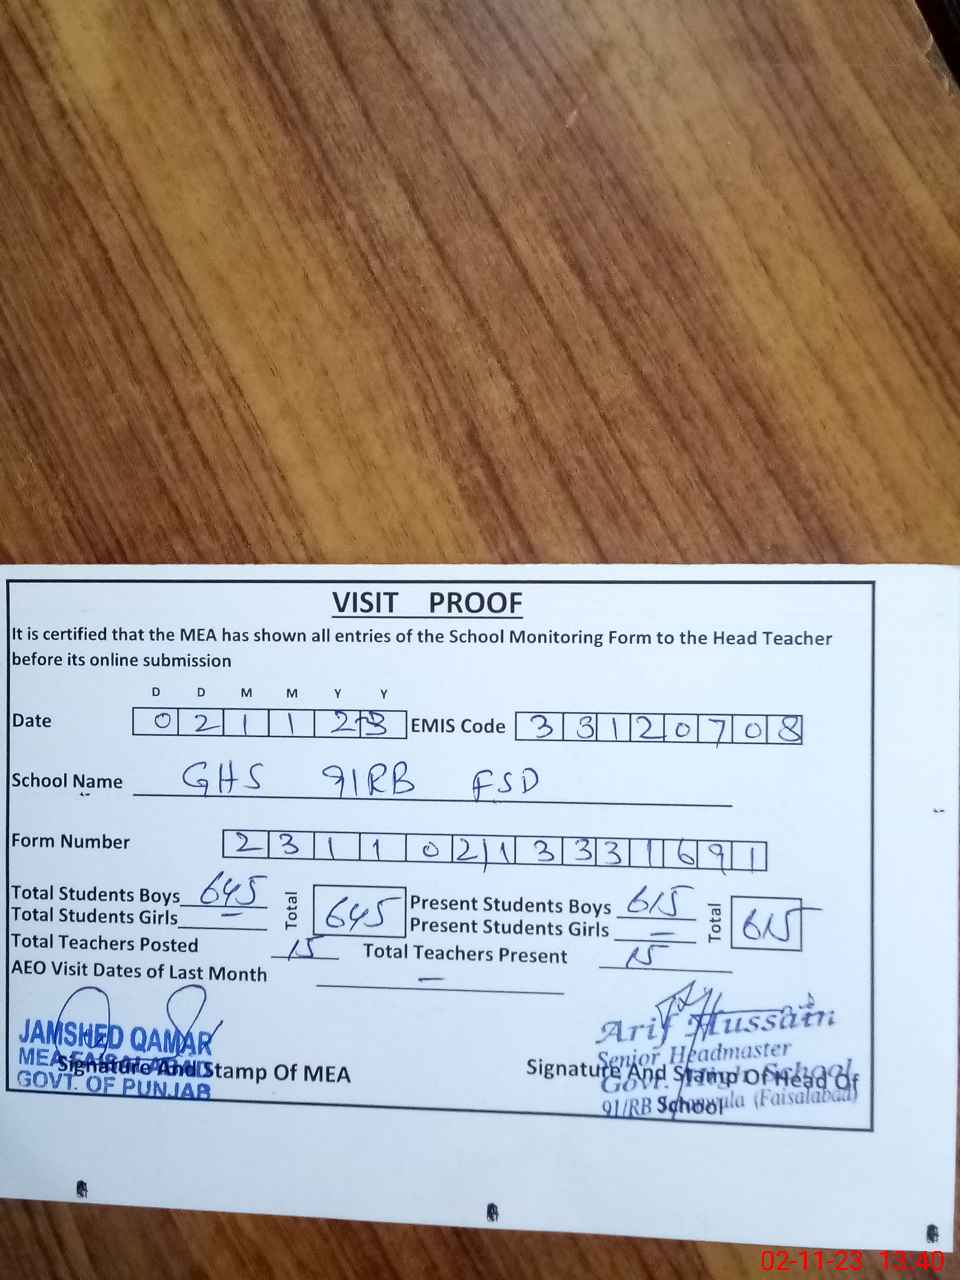 VISIT PROOF
It is certified that the MEA has shown all entries of the School Monitoring Form to the Head Teacher
before its online submission
D D M M Y Y
Date 0 2 1 1 2 3 EMIS Code 3 3 1 2 0 7 0 8
School Name GHS 91RB FSD
Form Number 2 3 1 1 0 2 1 3 3 3 1 6 9 1
Total Students Boys 645 Total 645 Present Students Boys 615 Total 615
Total Students Girls – Present Students Girls –
Total Teachers Posted 15 Total Teachers Present 15
AEO Visit Dates of Last Month –
JAMSHED QAMAR
MEA FAISALABAD
GOVT. OF PUNJAB
Signature And Stamp Of MEA
Arif Hussain
Senior Headmaster
Govt. High School
91/RB (Faisalabad)
Signature And Stamp Of Head Of
School
02-11-23 13:40